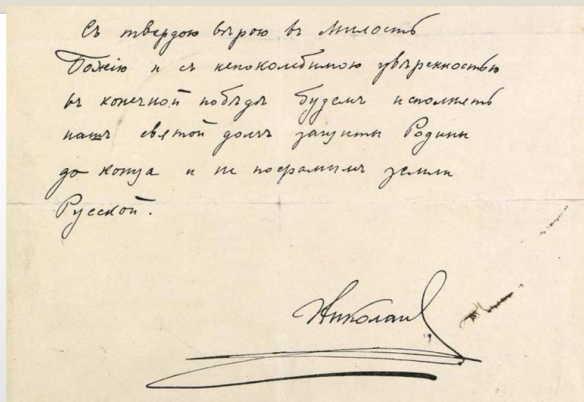 Съ твердою вѣрою въ милость
Божію и съ непоколебимою увѣренностью
въ конечной побѣдѣ будемъ исполнять
нашъ святой долгъ защиты Родины
до конца и не посрамимъ земли
Русской.
Николай